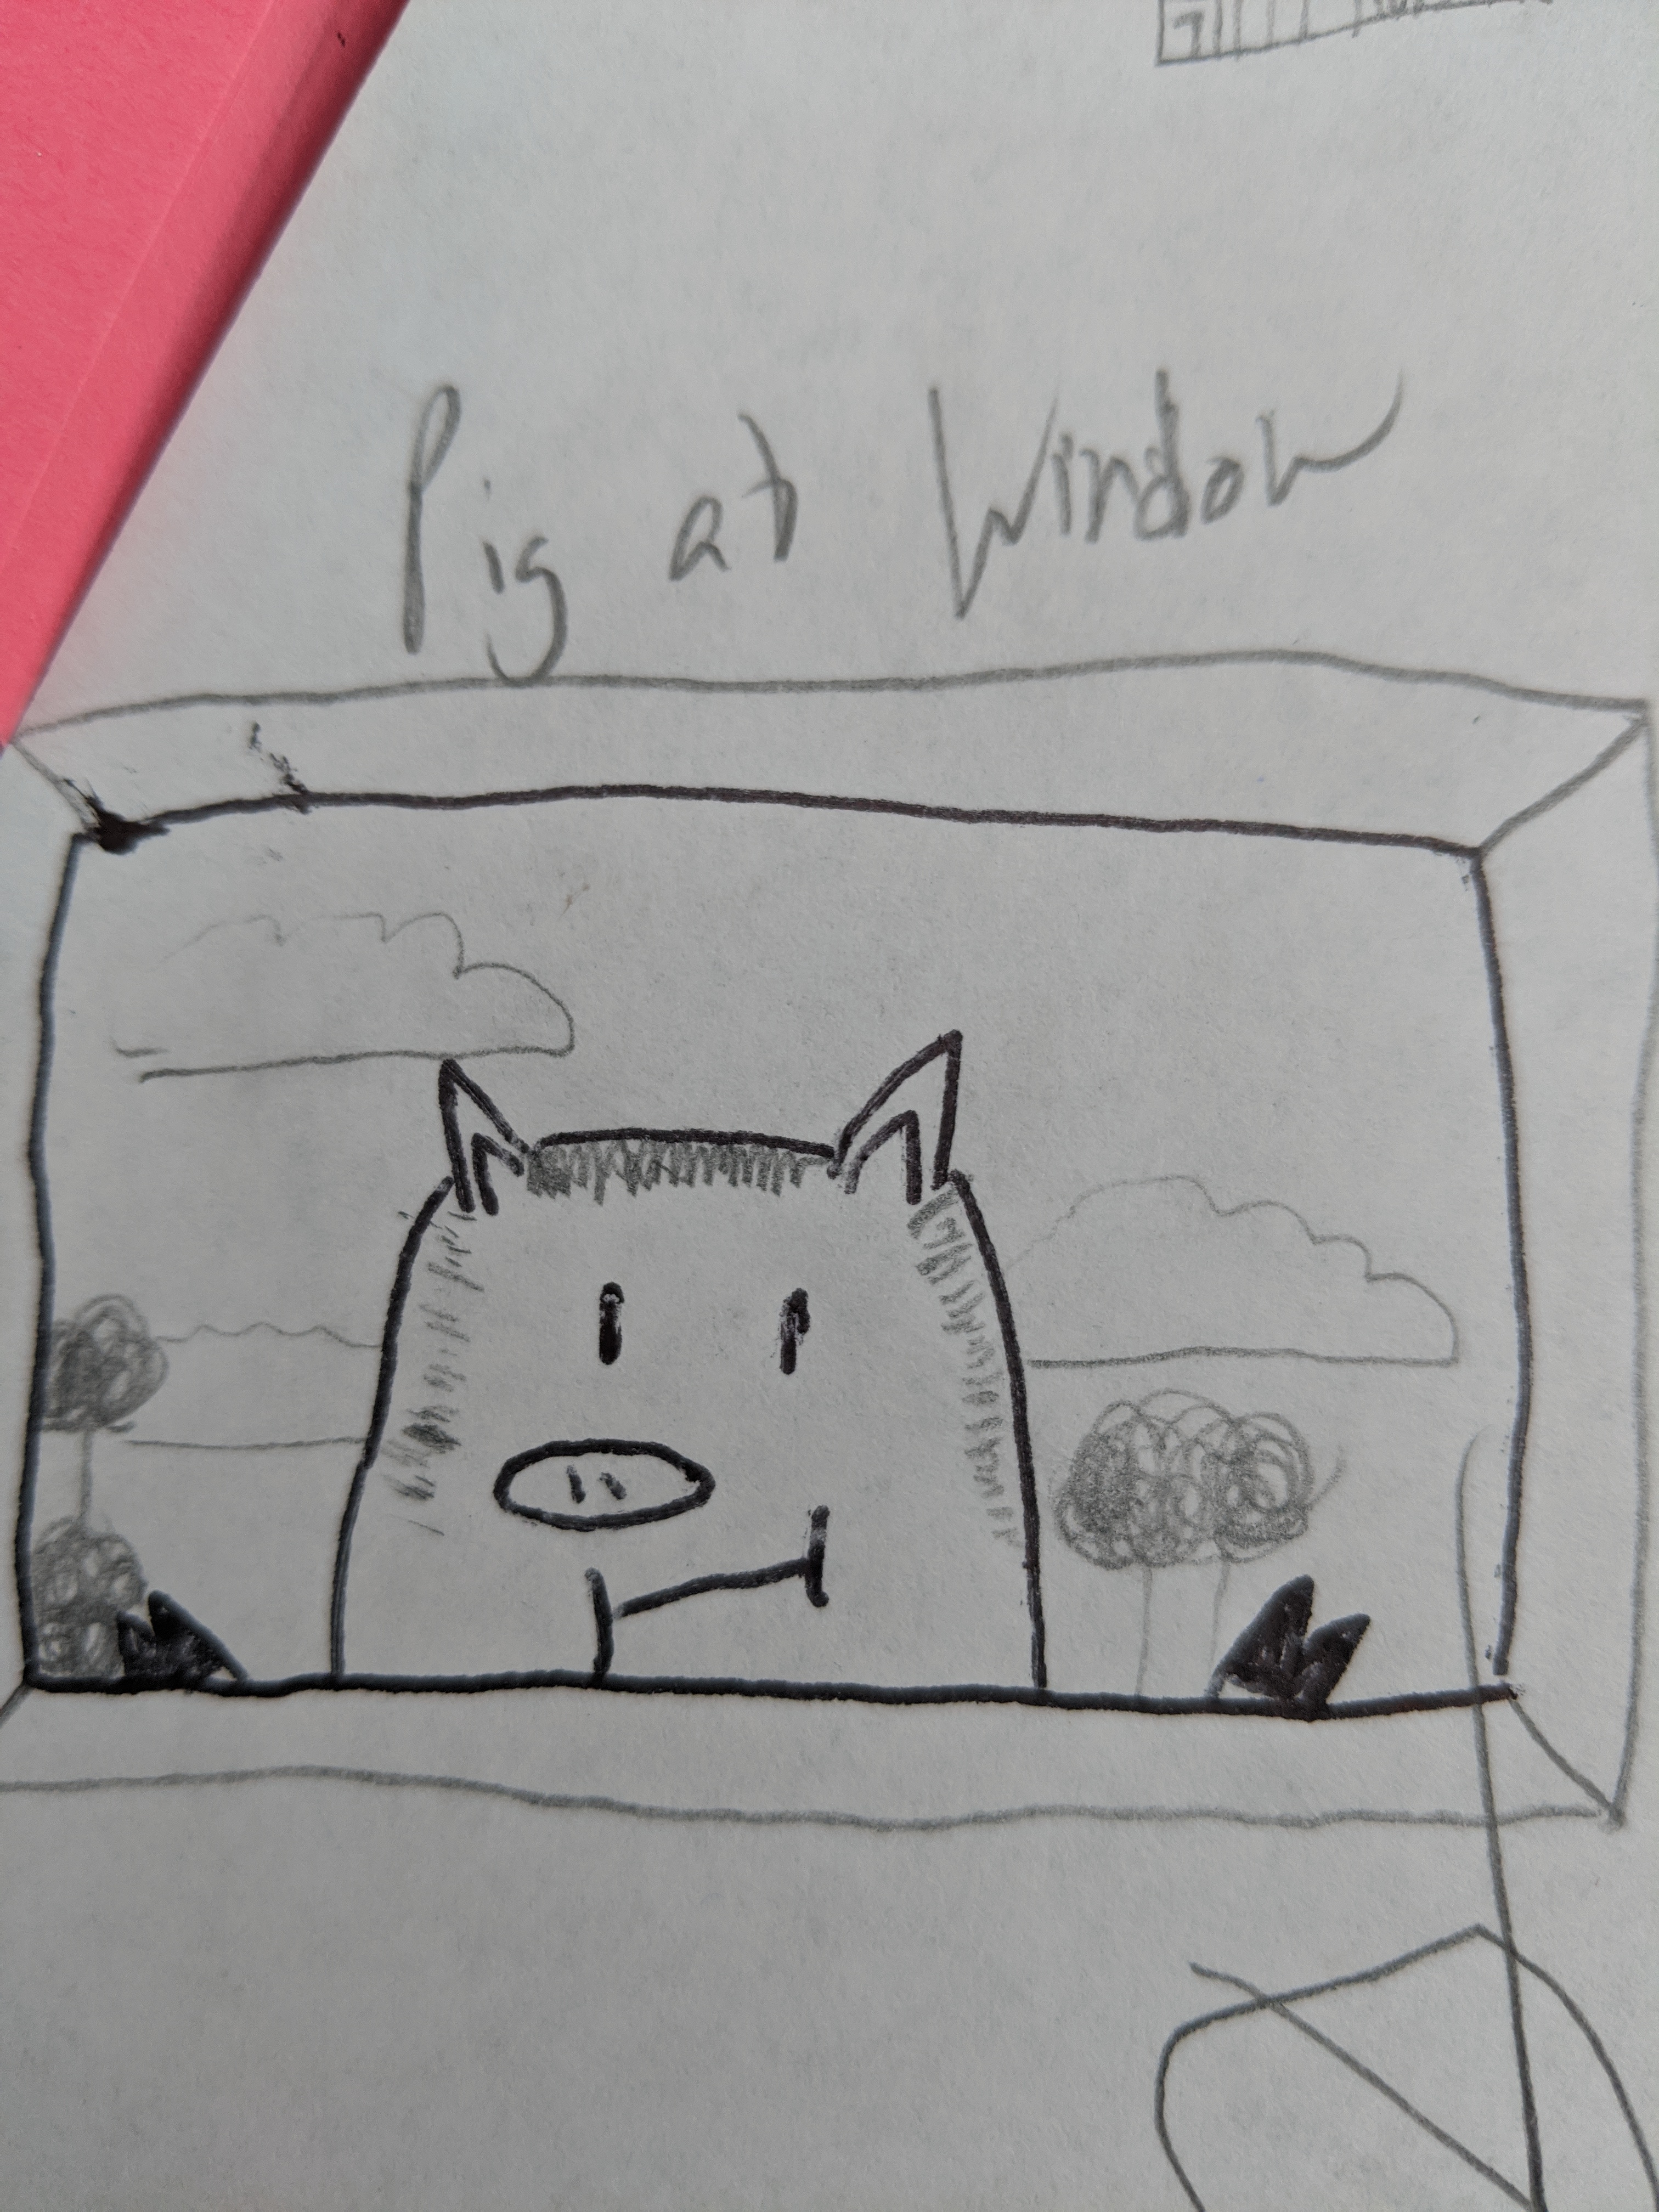 Pig at Window